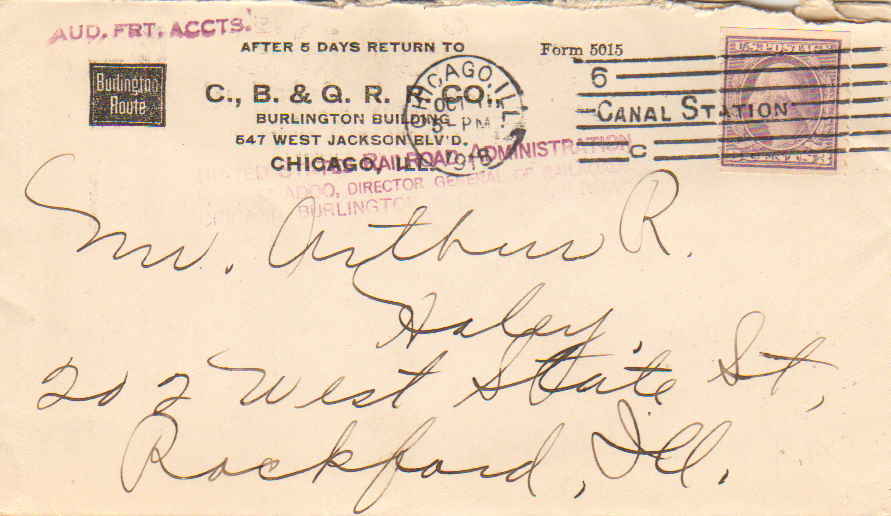 AUD. FRT. ACCTS.
AFTER 5 DAYS RETURN TO
Form 5015
Burlington
Route
C., B. & Q. R. R. CO.,
BURLINGTON BUILDING
547 WEST JACKSON BLV'D.
CHICAGO, ILL.
CHICAGO, ILL.
OCT
5 - PM
1918
6
CANAL STATION
C
U.S. POSTAGE
RAILROAD ADMINISTRATION
ADOO, DIRECTOR GENERAL OF
BURLINGTON
Mr. Arthur R.
Haley,
202 West State St,
Rockford, Ill.